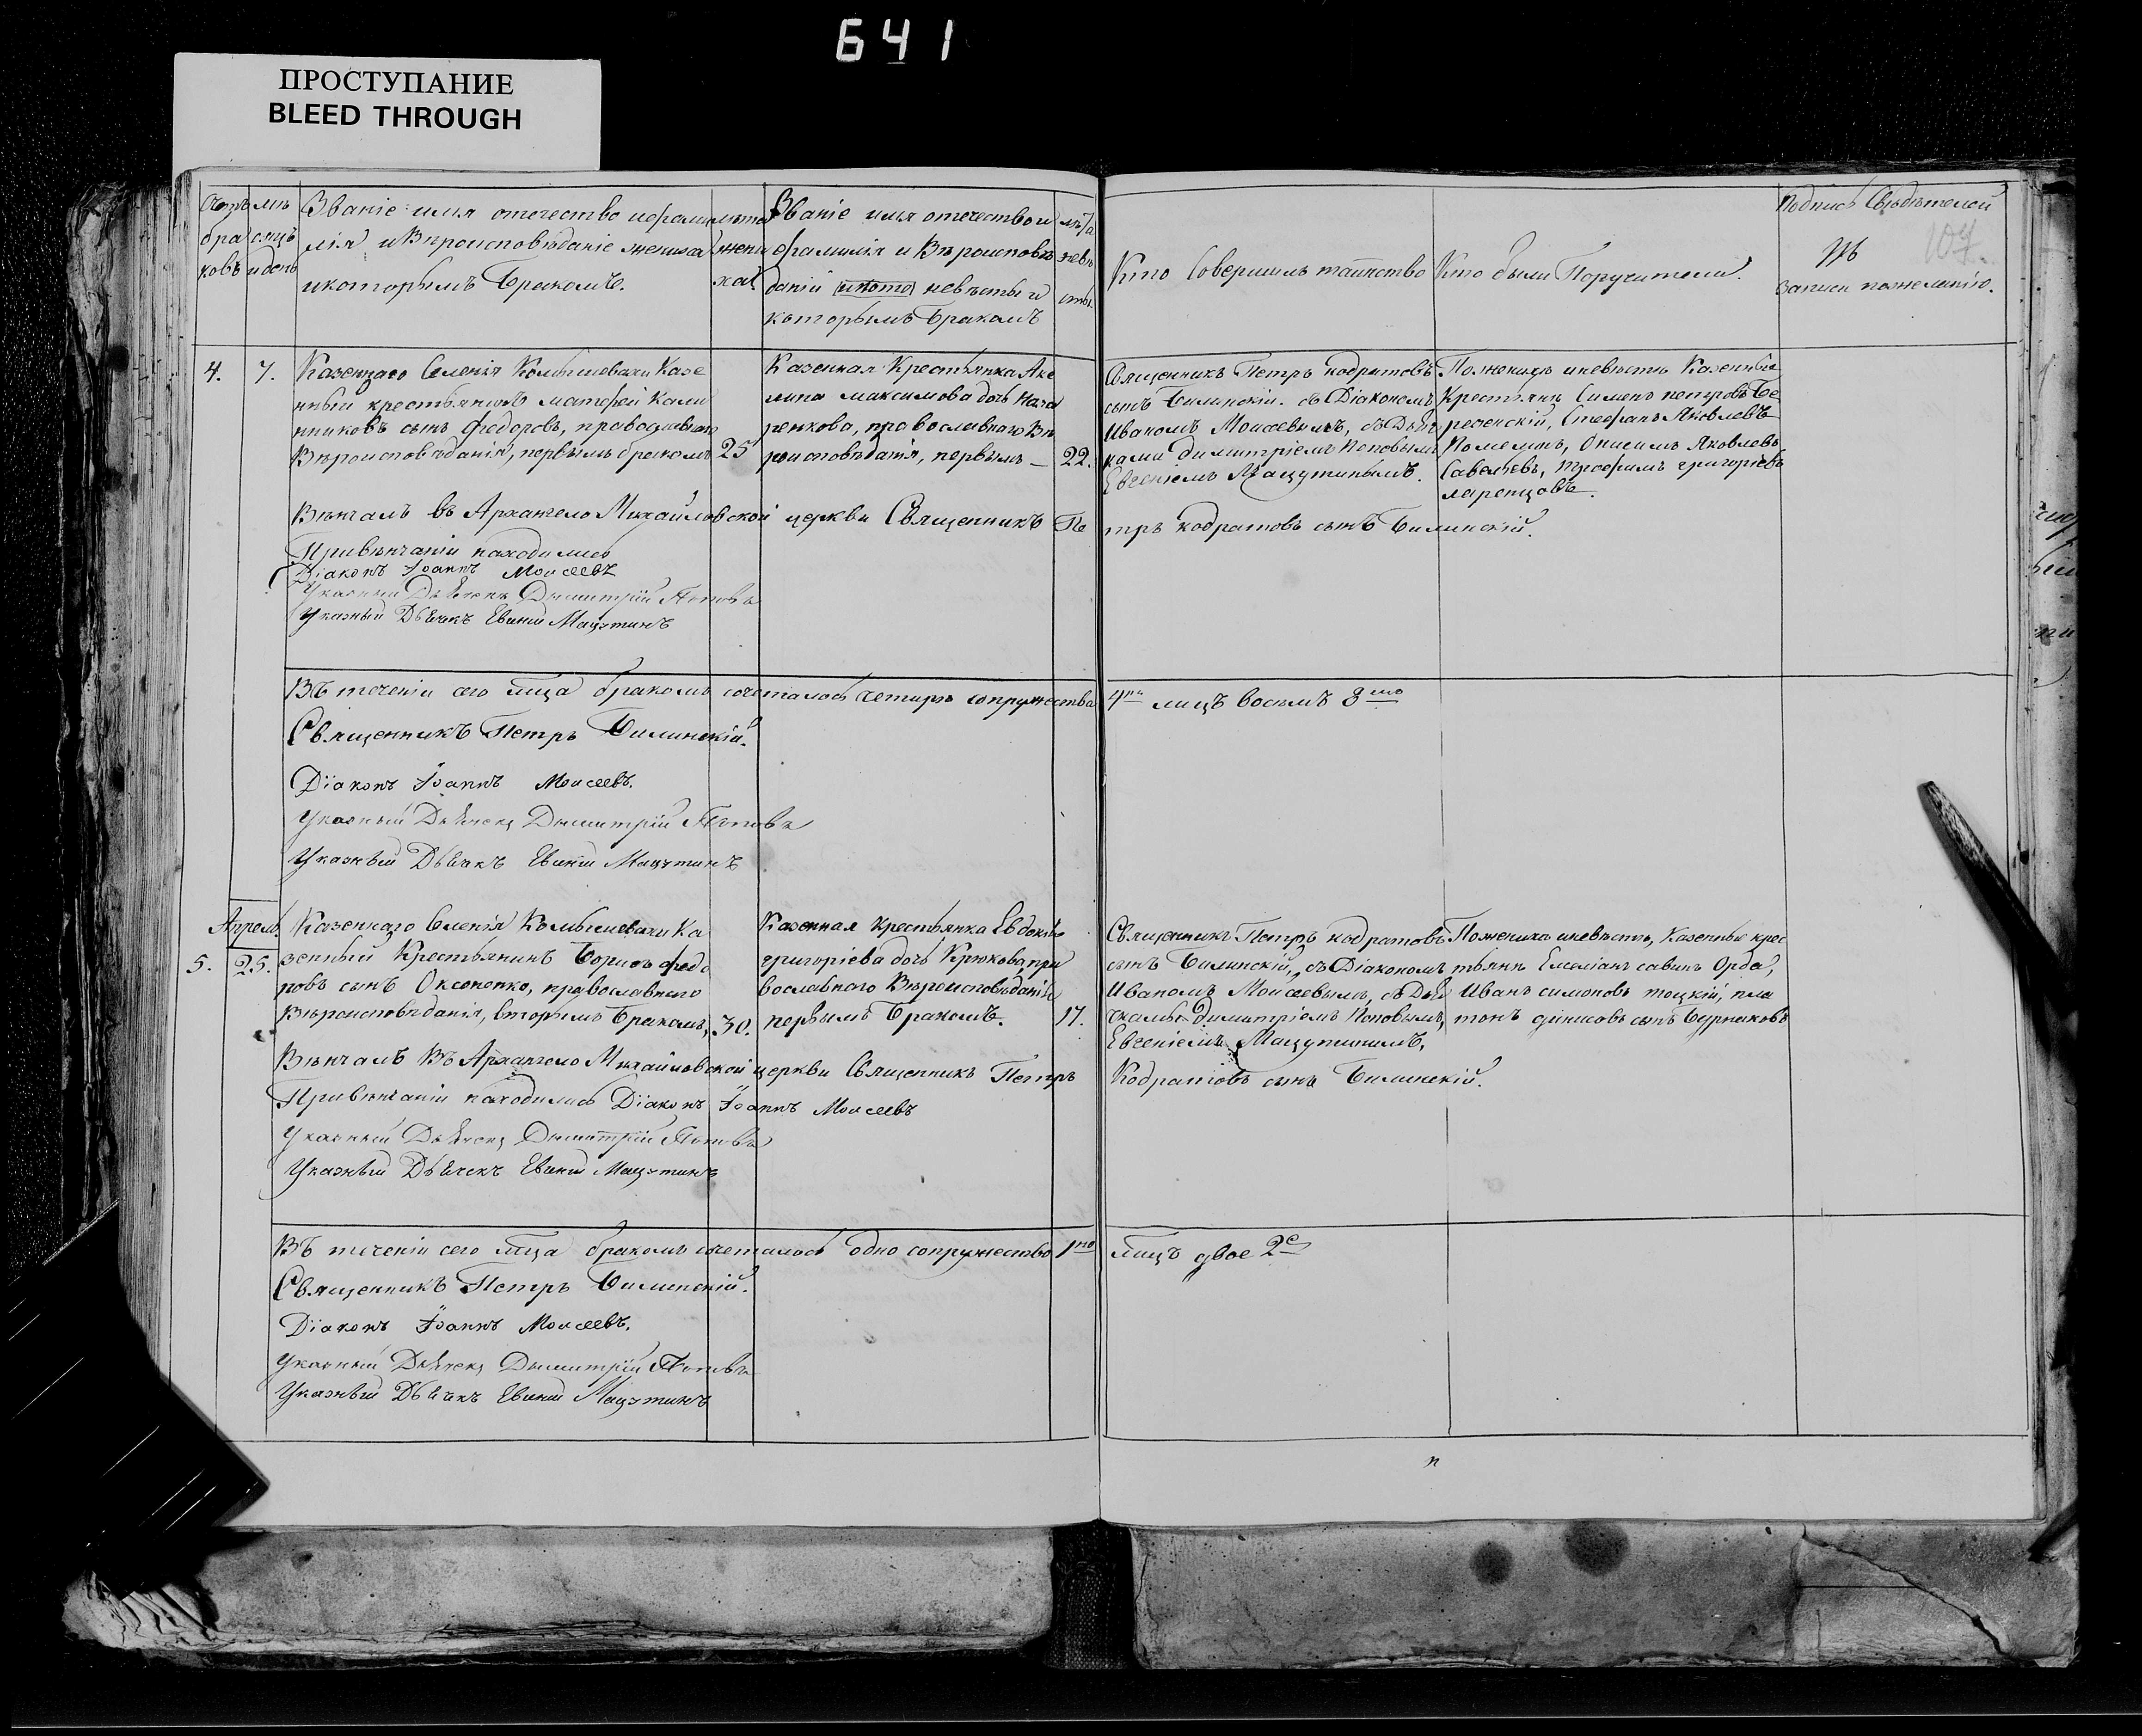 641
ПРОСТУПАНИЕ
BLEED THROUGH
Счетъ бра ковъ
мѣсяцъ и день
Званіе имя отечество и фами
лія и Вѣроисповѣданіе жениха
и которымъ Бракомъ.
лѣта жени ха
Званіе имя отечество и
фамилія и Вѣроисповѣ
даніи невѣсты и
которымъ Бракомъ
лѣта невѣ сты.
Кто Совершилъ таинство
Кто были Поручители.
Подпись Свидѣтелей
записи пожеланію.
107.
4.
7.
Казеннаго Селенія Комышевахи Казе
нный крестьянинъ матфей Кали
нниковъ сынъ федоровъ, православнаго
Вѣроисповѣданія, первымъ бракомъ
25
Казенная Крестьянка Аку
лина максимова дочь Наза
ренкова, православнаго Вѣ
роисповѣданія, первымъ —
22.
Священникъ Петръ кодратовъ
сынъ Билинскій. съ Діакономъ
Иваномъ Моисеевымъ, съ Дьяч
ками димитріемъ Поповымъ
Евгеніемъ Мацутинымъ.
Поженихѣ иневѣстѣ Казенные
Крестьяне Симеонъ петровъ Бе
резенскій, Стефанъ Яковлевъ
Онисимъ Яковлевъ
Савельевъ, Трофимъ григоріевъ
ларенцовъ.
Вѣнчалъ въ Архангело Михайловской церкви Священникъ Пе
тръ кодратовъ сынъ Билинскій.
Привѣнчаніи находились
Діаконъ Іоаннъ Моисеевъ
Указный Дьячекъ Дымитрій Поповъ
Указный Дьячекъ Евгеній Мацутинъ
Въ теченіи сего мца бракомъ сочеталось четыре сопружества
4ре лицъ восемъ 8мъ
Священникъ Петръ Билинскій.
Діаконъ Іоаннъ Моисеевъ.
Указный Дьячекъ Дымитрій Поповъ
Указный Дьячекъ Евгеній Мацутинъ
Апрель.
5.
25.
Казеннаго Селенія Комышевахи Ка
зенный Крестьянинъ Борисъ федо
ровъ сынъ Оксененко, православнаго
Вѣроисповѣданія, вторымъ Бракомъ,
30.
Казенная крестьянка Евдокія
григоріева дочь Крюкова, пра
вославнаго Вѣроисповѣданія
первымъ Бракомъ.
17.
Священникъ Петръ кодратовъ
сынъ Билинскій, съ Діакономъ
Иваномъ Моисеевымъ, съ Дья
чками димитріемъ Поповымъ,
Евгеніемъ Мацутинымъ,
Поженихѣ иневѣстѣ, Казенные крес
тьяне Емеліанъ савинъ Орда,
Иванъ симоновъ тоцкій, пла
тонъ динисовъ сынъ Бурлаковъ
Вѣнчалъ Въ Архангело Михайловской церкви Священникъ Петръ
Кодратовъ сынъ Билинскій.
Привѣнчаніи находились Діаконъ Іоаннъ Моисеевъ
Указный Дьячекъ Дымитрій Поповъ
Указный Дьячекъ Евгеній Мацутинъ
Въ теченіи сего мца бракомъ сочеталось одно сопружество 1но
лицъ двое 2е
Священникъ Петръ Билинскій.
Діаконъ Іоаннъ Моисеевъ.
Указный Дьячекъ Дымитрій Поповъ
Указный Дьячекъ Евгеній Мацутинъ